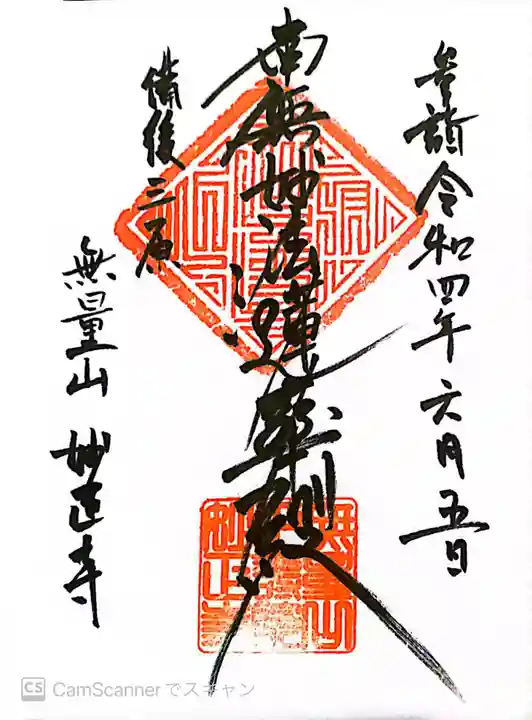 参詣 令和四年六月五日
南無妙法蓮華経
備後三原
無量山 妙蓮寺
CS CamScannerでスキャン